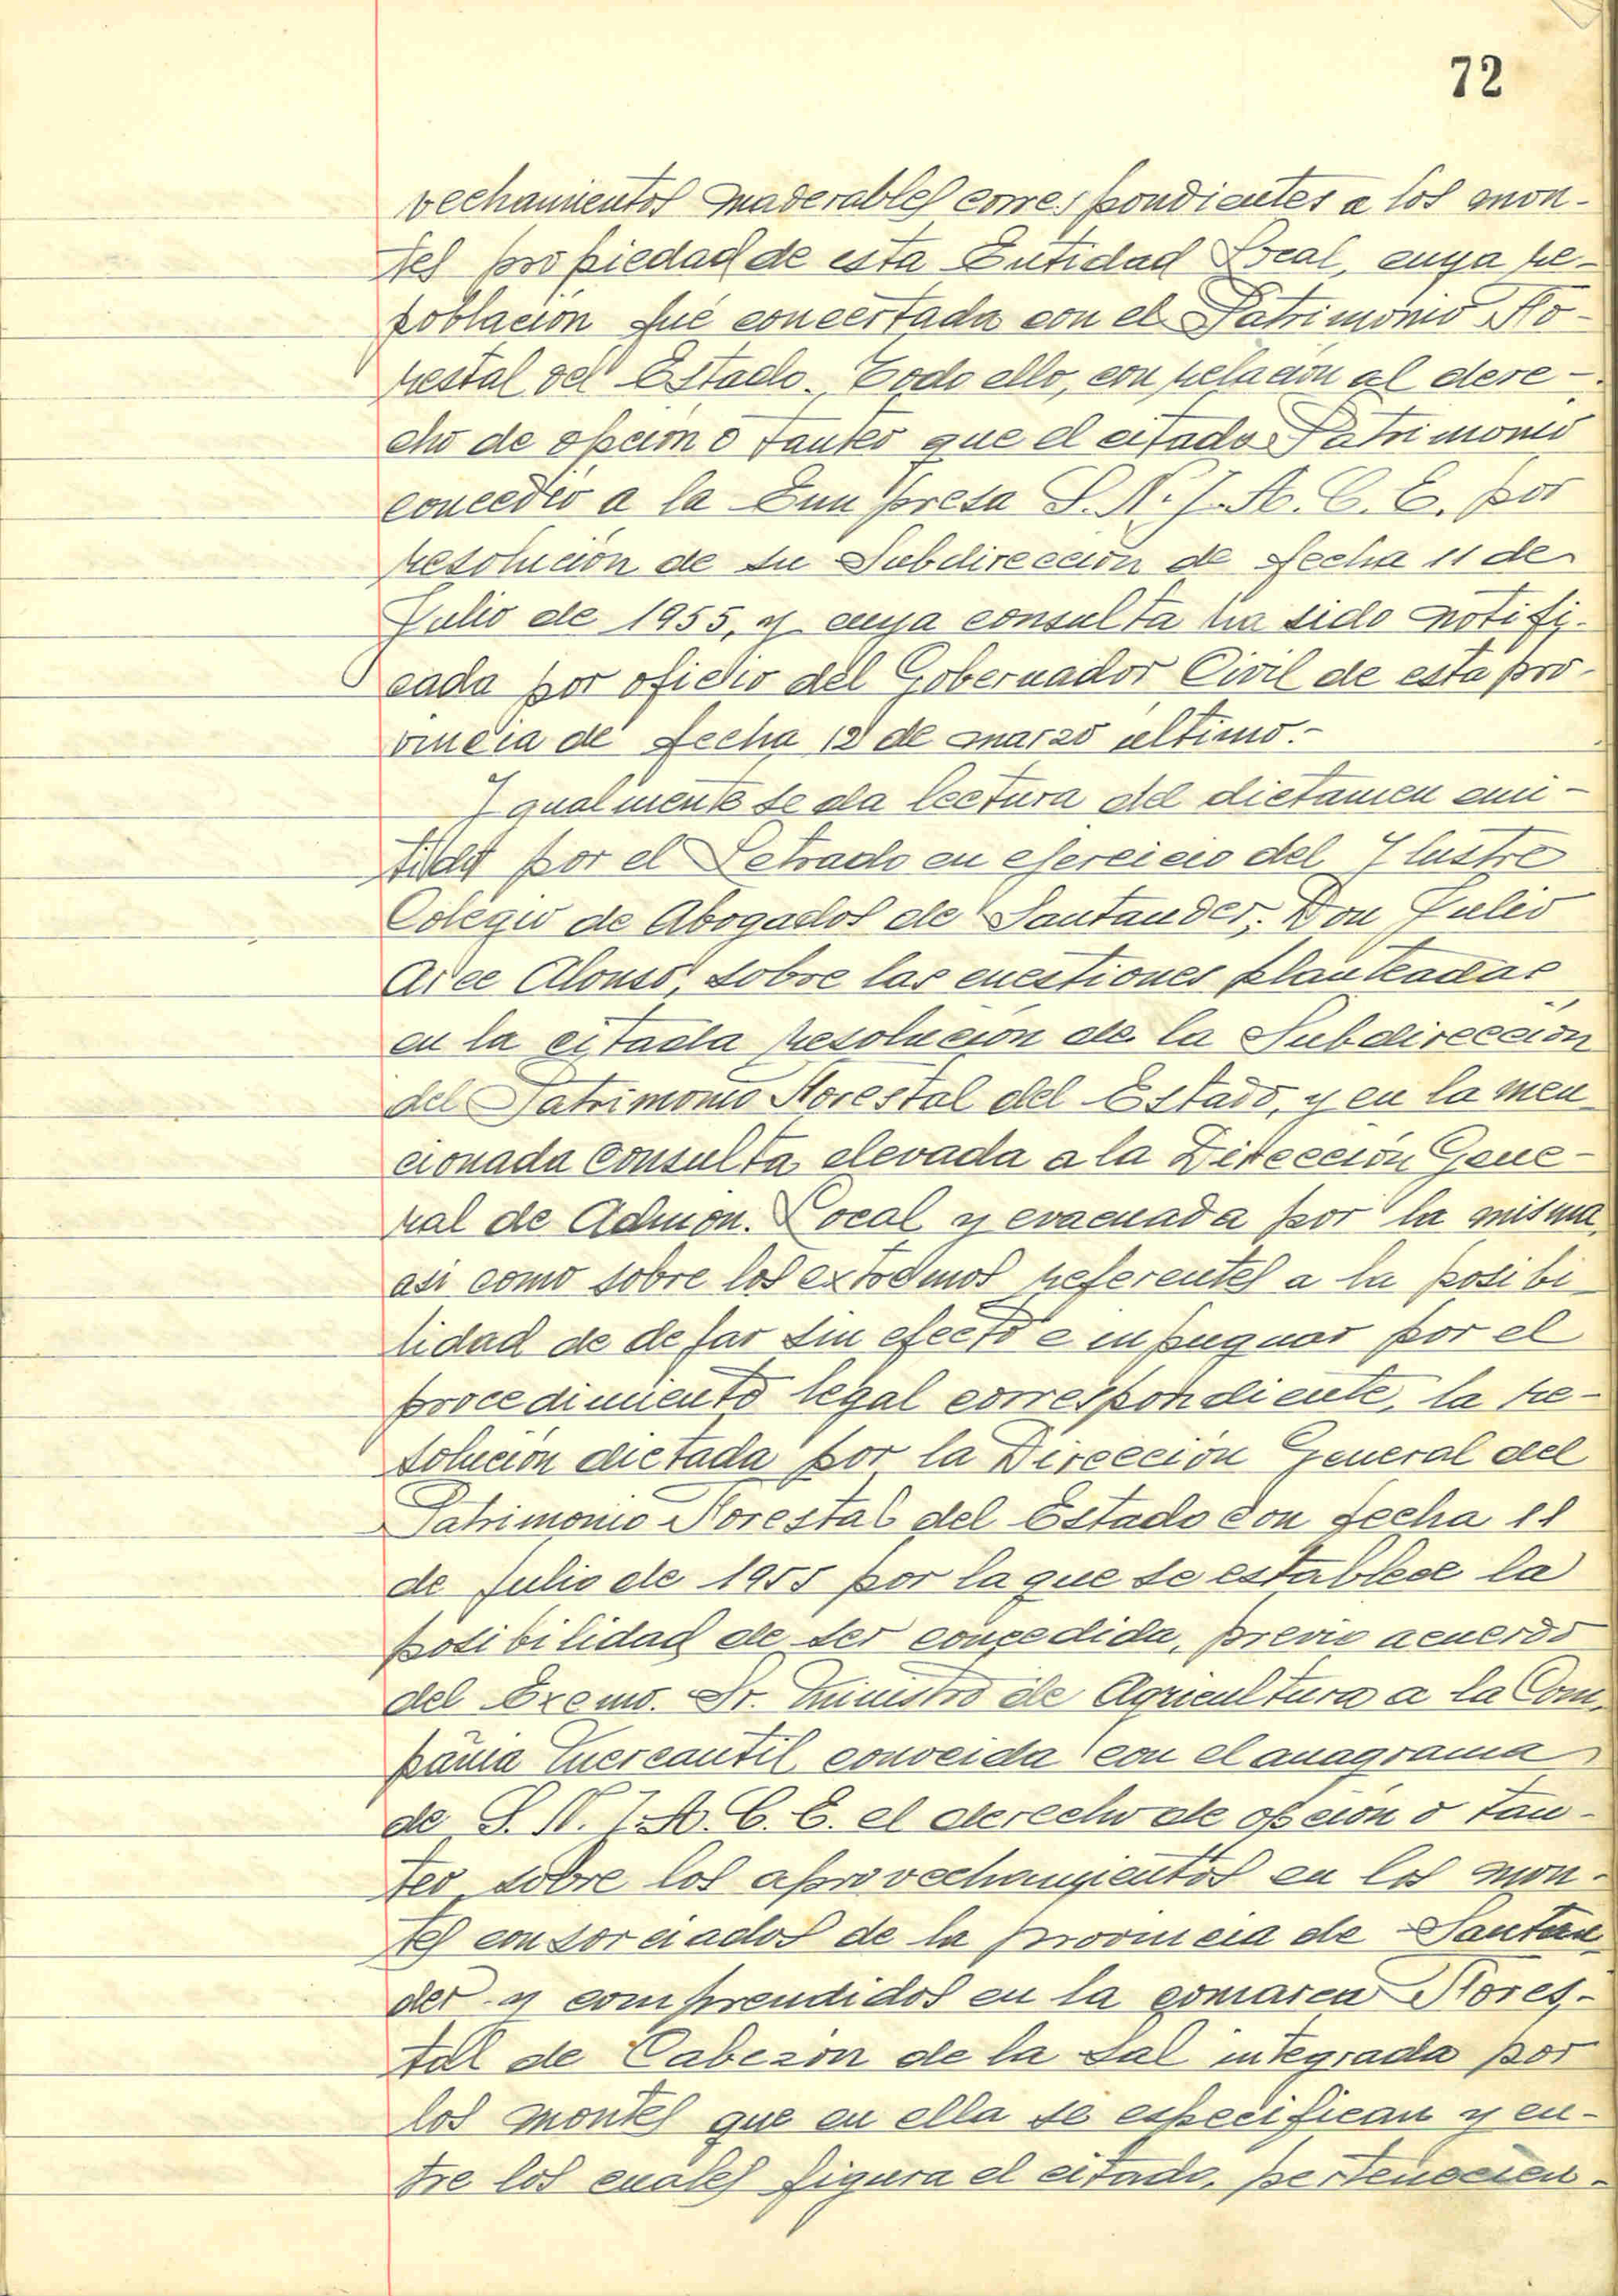 72
vechamientos maderables correspondientes a los mon-
tes propiedad de esta Entidad Local, cuya re-
población fué concertada con el Patrimonio Fo-
restal del Estado. Todo ello, con relación al dere-
cho de opción o tanteo que el citado Patrimonio
concedió a la Empresa S.N.I.A.C.E. por
resolución de su Subdirección de fecha 11 de
Julio de 1955, y cuya consulta ha sido notifi-
cada por oficio del Gobernador Civil de esta pro-
vincia de fecha 12 de marzo último.-
Igualmente se da lectura del dictamen emi-
tido por el Letrado en ejercicio del Ilustre
Colegio de Abogados de Santander, Don Julio
Arce Alonso, sobre las cuestiones planteadas
en la citada resolución de la Subdirección
del Patrimonio Forestal del Estado, y en la men
cionada consulta elevada a la Dirección Gene-
ral de Admón. Local y evacuada por la misma,
asi como sobre los extremos referentes a la posibi
lidad de dejar sin efecto e inpugnar por el
procedimiento legal correspondiente, la re-
solución dictada por la Dirección General del
Patrimonio Forestal del Estado con fecha 11
de julio de 1955 por la que se establece la
posibilidad de ser concedida, previo acuerdo
del Excmo. Sr. Ministro de Agricultura a la Com
pañia Mercantil conocida con el anagrama
de S.N.I.A.C.E. el derecho de opción o tan-
teo sobre los aprovechamientos en los mon-
tes consorciados de la provincia de Santan
der y comprendidos en la comarca Fores-
tal de Cabezón de la Sal integrada por
los montes que en ella se especifican y en-
tre los cuales figura el citado, pertenecien-